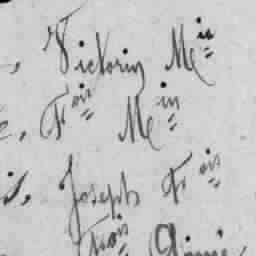 , Victorin M^ie
e, F^ois M^in
is, Joseph F^ois
F^ois Aimé,